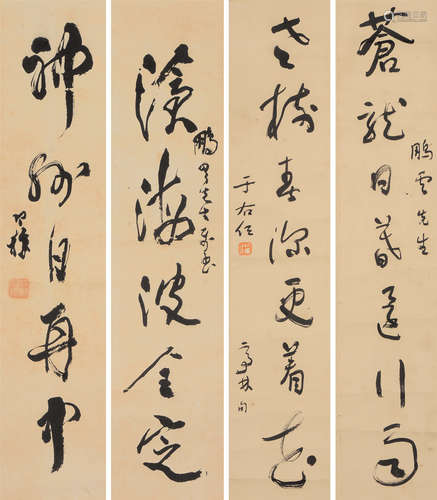 蒼龍日暮還行雨
鵬雲先生
老樹春深更着花
亭林句
于右任
滄海波全定
鵬雲先生
神州日再中